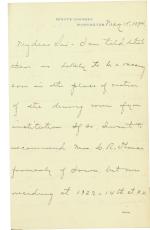 SENATE CHAMBER,
WASHINGTON. May 15, 189
My dear Sir - I am told that
there is likely to be a vacancy
soon in the place of matron
of the dining room of your
institution. If so I want to
recommend Mrs. C. R. Thomas
formerly of Iowa, but now
residing at 1922 - 14th st. N.W.